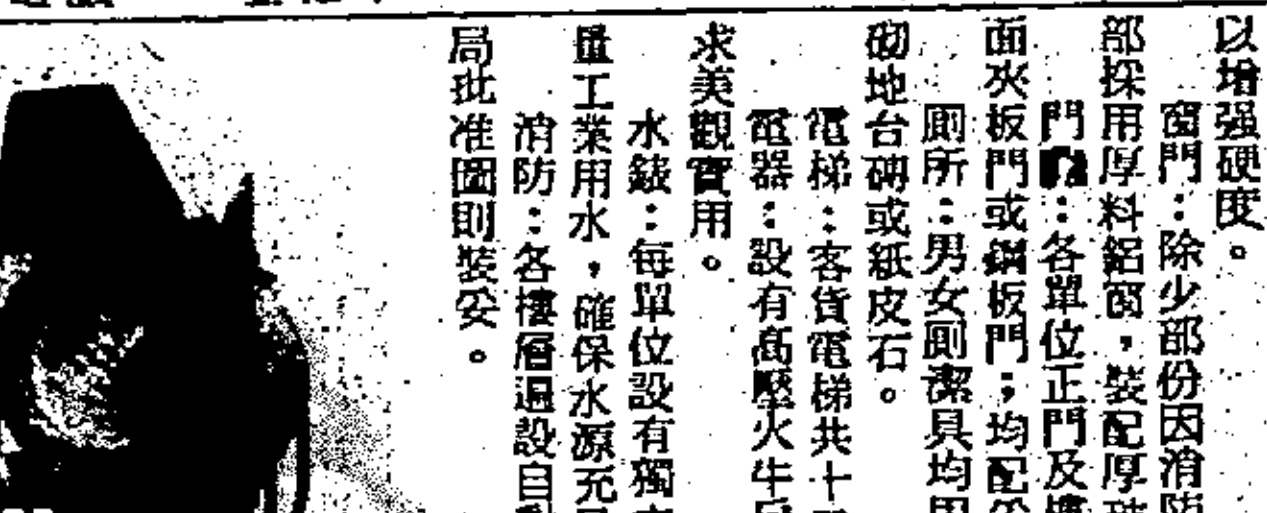 以增强硬度。
窗門：除少部份因消防
部採用厚料鋁窗，裝配厚玻
門：各單位正門及樓
面夾板門或鋼板門；均配
厠所：男女厠潔具均用
砌地台磚或紙皮石。
電梯：客貨電梯共十
電器：設有高壓火牛房
求美觀實用。
水錶：每單位設有獨立
量工業用水，確保水源充足
消防：各樓層遍設自動
局批准圖則裝妥。